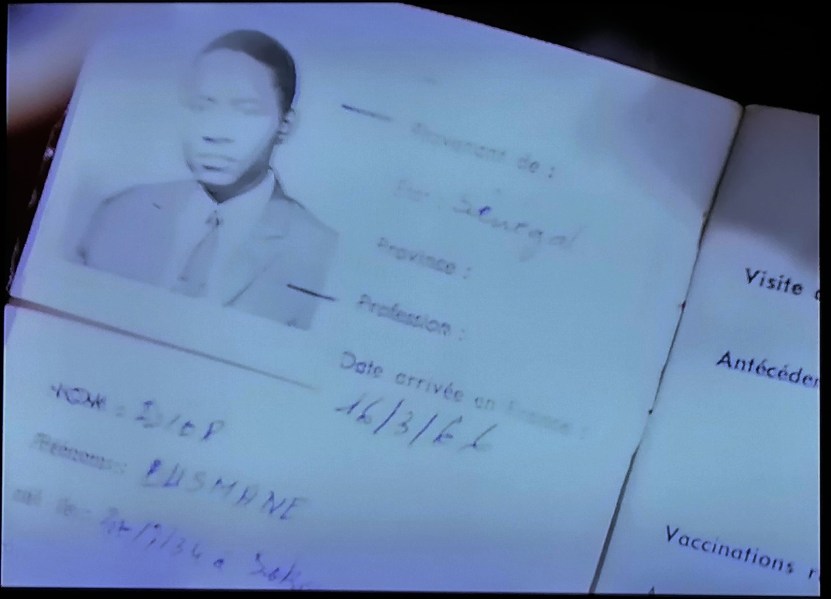 Provenant de :
Sénégal
Province :
Profession :
Date arrivée en France :
16/3/66
NOM : DIOP
Prénoms : OUSMANE
né le :
Visite
Antécéden
Vaccinations r